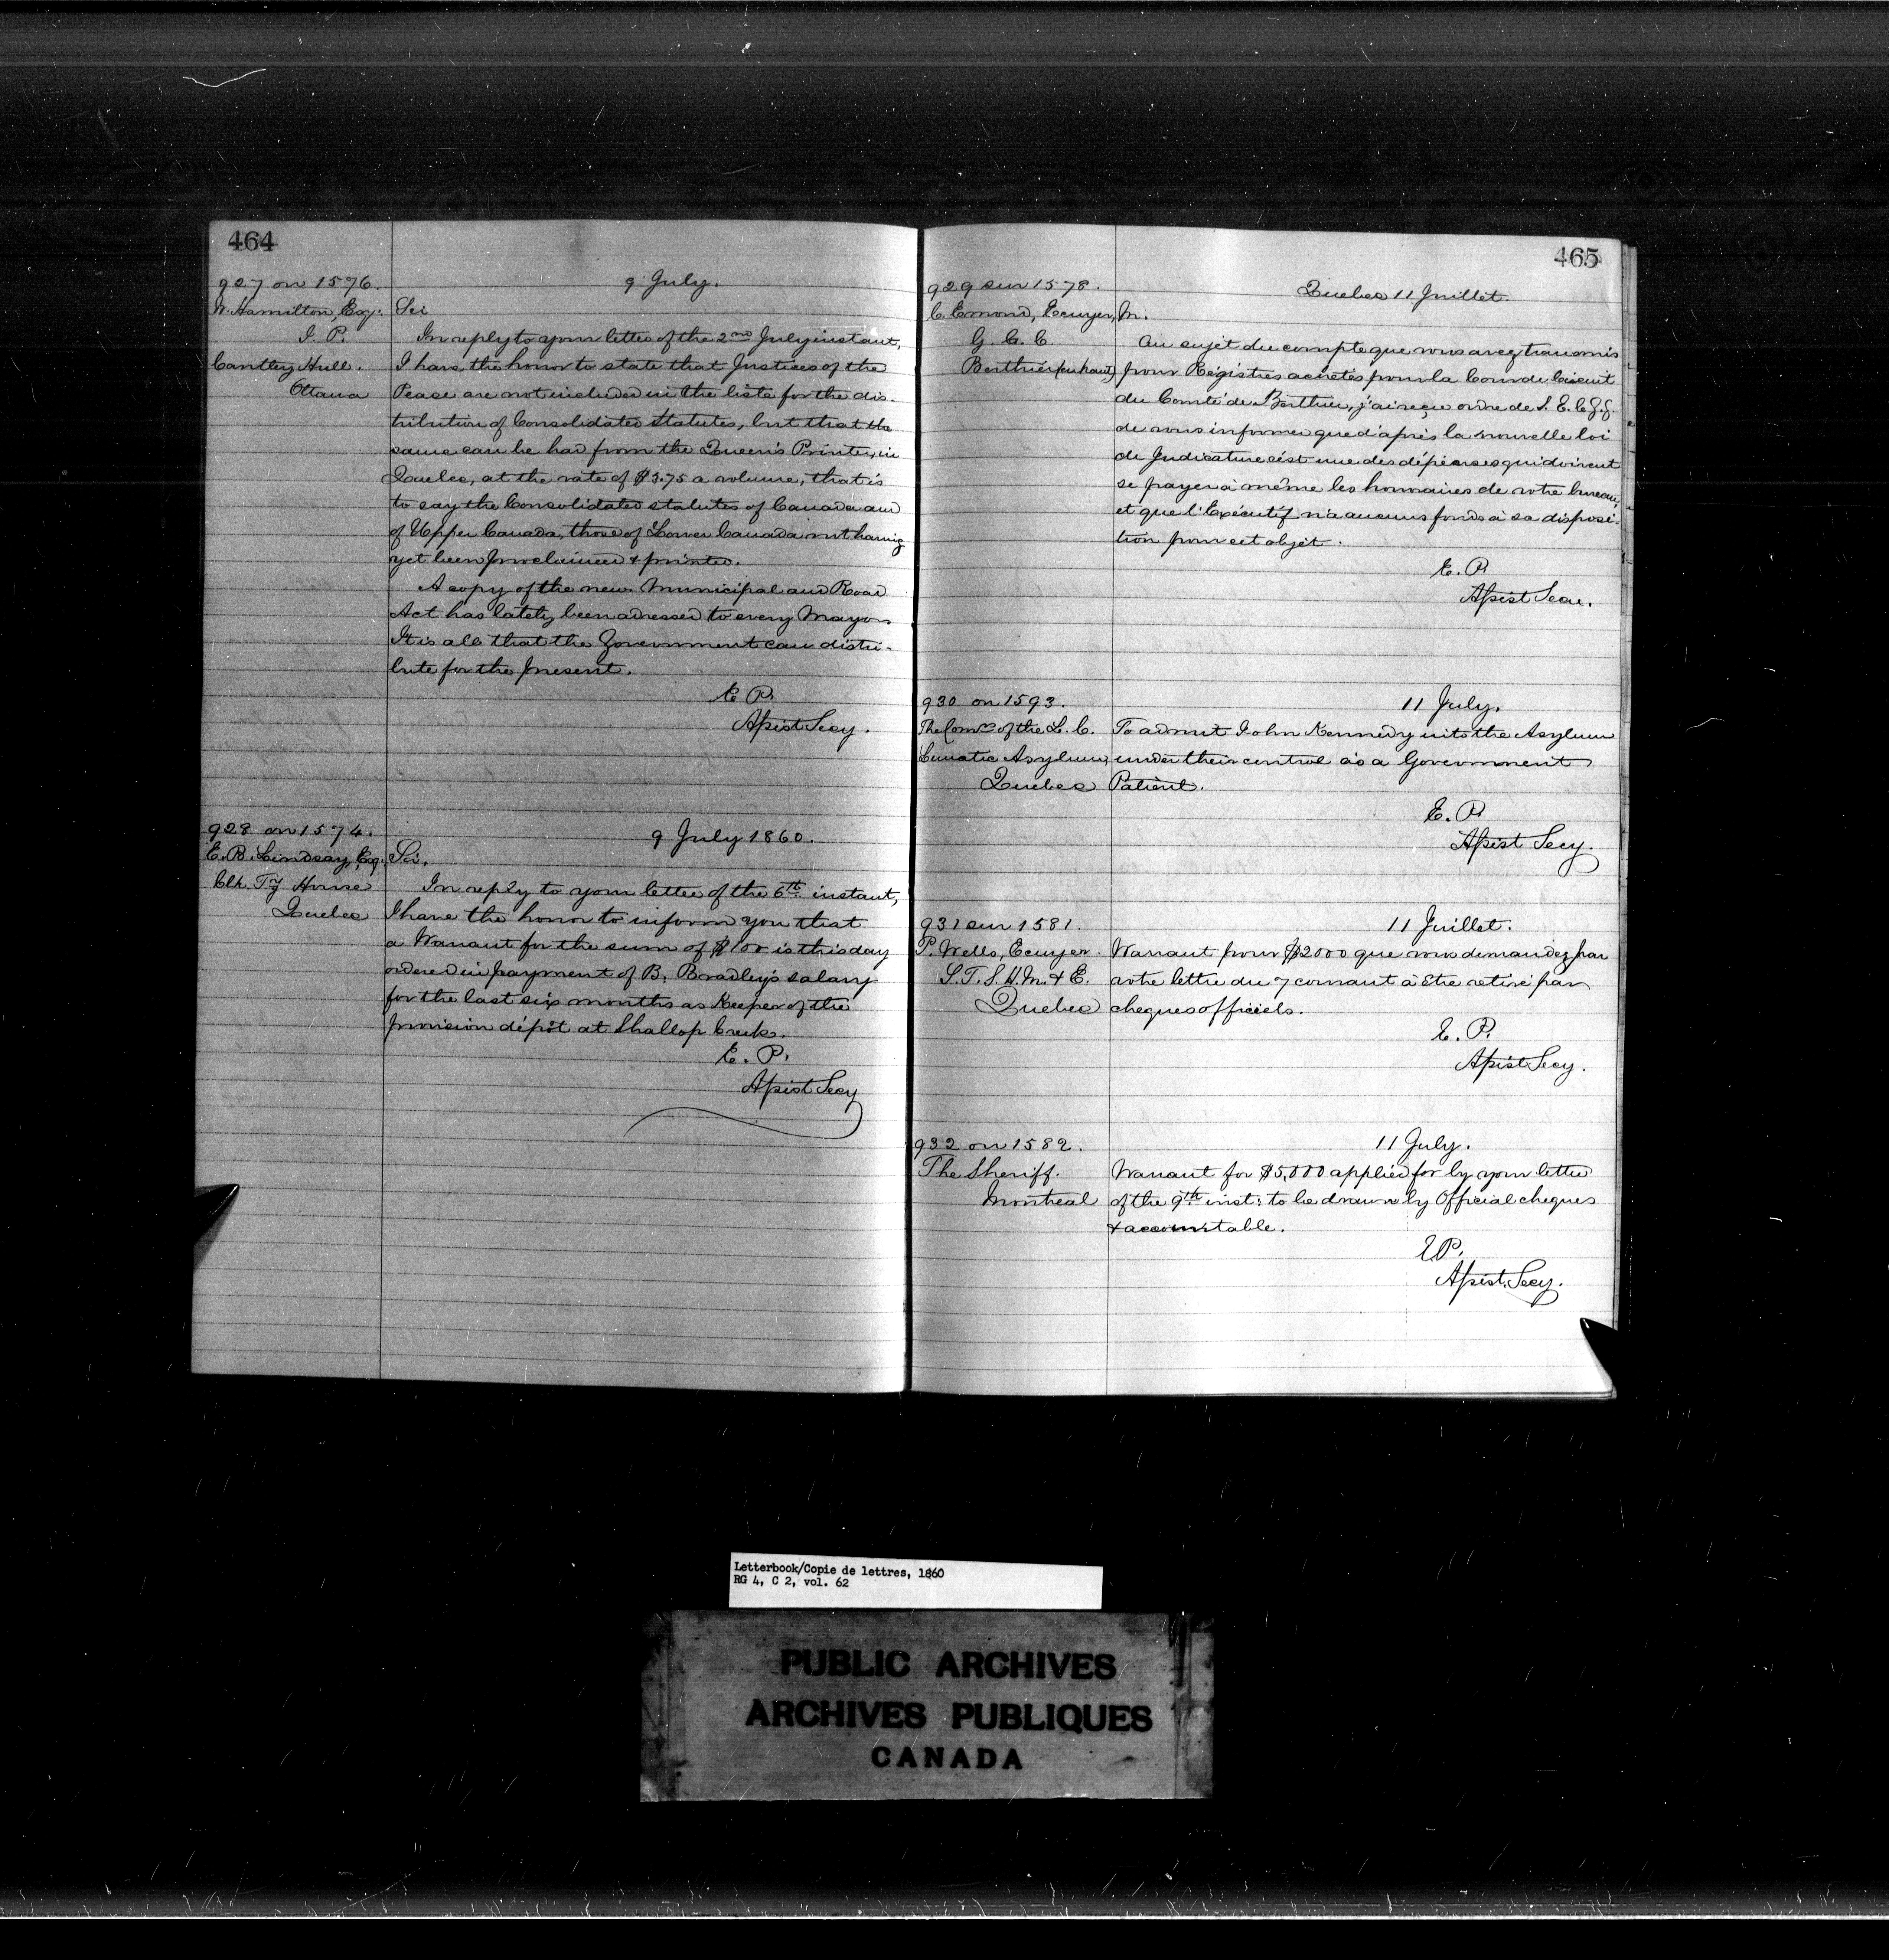 464
927 on 1576.
W. Hamilton, Esq.
J. P.
Cantley Hull.
Ottawa
9 July.
Sir
In reply to your letter of the 2nd July instant,
I have the honor to state that Justices of the
Peace are not included in the lists for the dis-
tribution of Consolidated Statutes, but that the
same can be had from the Queen's Printer, in
Quebec, at the rate of $3.75 a volume, that is
to say the Consolidated statutes of Canada and
of Upper Canada, those of Lower Canada not having
yet been proclaimed & printed.
A copy of the new Municipal and Road
Act has lately been adressed to every Mayor
It is all that the Government can distri-
bute for the present.
E. P.
Assist Secy.
928 on 1574.
E. B. Lindsay, Esq.
Clk. Ty House
Quebec
9 July 1860.
Sir,
In reply to your letter of the 6th instant,
I have the honor to inform you that
a Warrant for the sum of $100 is this day
ordered in payment of B. Bradley's salary
for the last six months as Keeper of the
provision dépôt at Shallop Creek.
E. P.
Assist Secy
465
929 sur 1578.
C. Emond, Ecuyer,
G. C. C.
Berthier (en haut)
Quebec 11 Juillet.
M.
Au sujet du compte que vous avez transmis
pour Régistres achetés pour la Cour de Circuit
du Comté de Berthier, j'ai reçu ordre de S. E. le G. G.
de vous informer que d'après la nouvelle loi
de Judicature c'est une des dépenses qui doivent
se payer à même les honoraires de votre bureau,
et que l'Exécutif n'a aucuns fonds à sa disposi-
tion pour cet objet.
E. P.
Assist Secr.
930 on 1593.
The Comrs of the L. C.
Lunatic Asylum,
Quebec
11 July.
To admit John Kennedy into the Asylum
under their control as a Government
Patient.
E. P.
Assist Secy.
931 sur 1581.
P. Wells, Ecuyer.
S. T. S. H. M. & E.
Quebec
11 Juillet.
Warrant pour $2000 que vous demandez par
votre lettre du 7 courant à être retiré par
cheques officiels.
E. P.
Assist Secy.
932 on 1582.
The Sheriff.
Montreal
11 July.
Warrant for $5,000 applied for by your letter
of the 9th inst: to be drawn by Official cheques
& accountable.
E. P.
Assist. Secy.
Letterbook/Copie de lettres, 1860
RG 4, C 2, vol. 62
PUBLIC ARCHIVES
ARCHIVES PUBLIQUES
CANADA